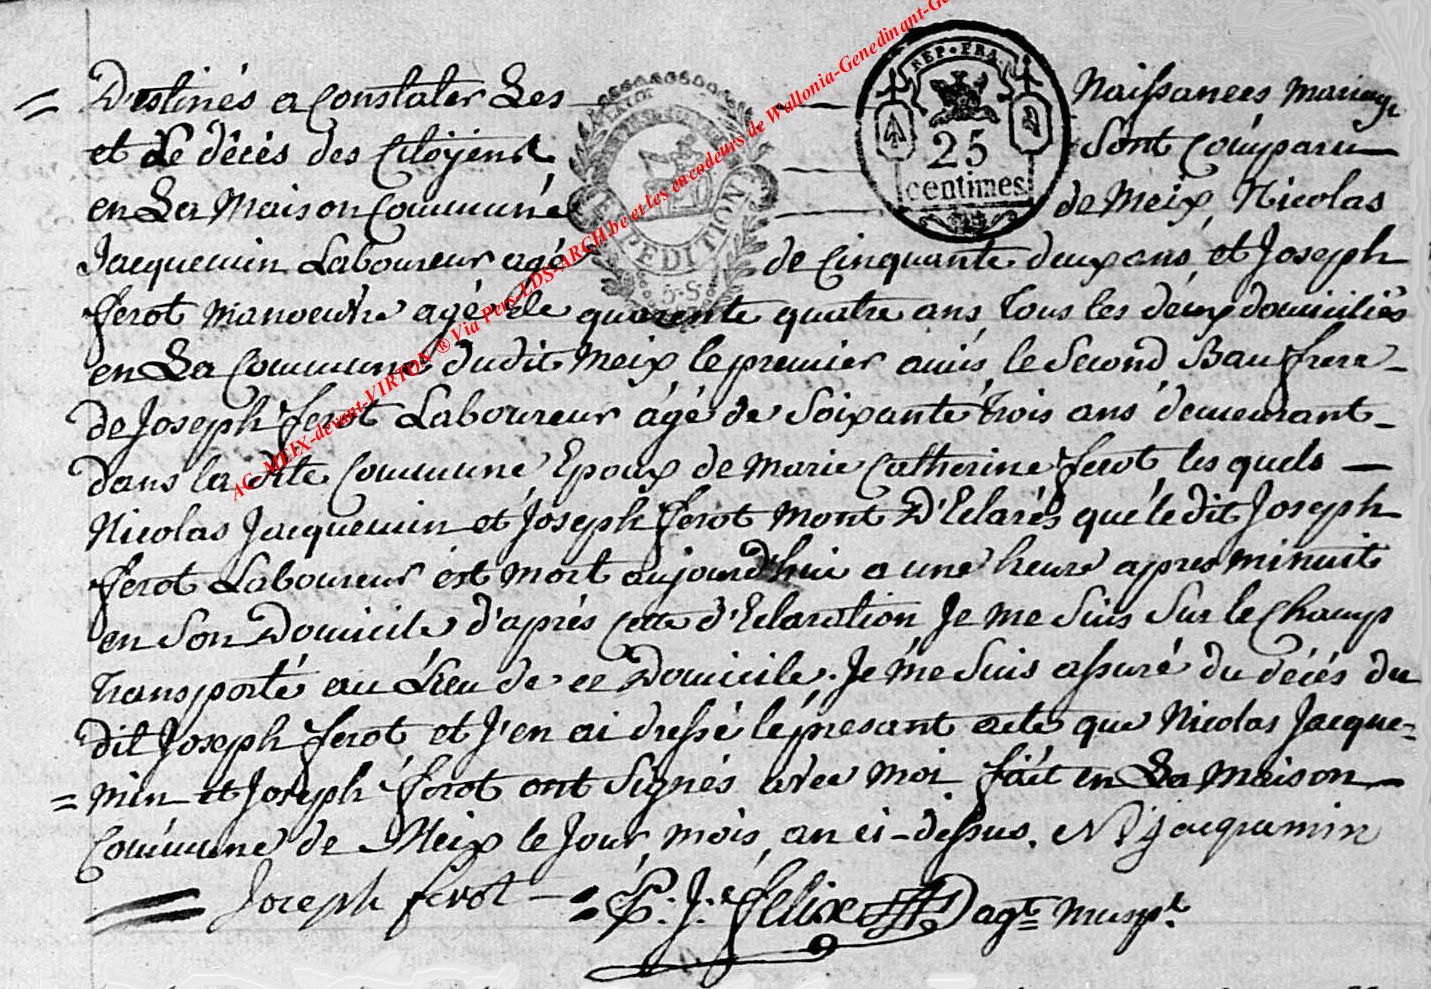 Destinés a Constater Les Naissances mariage
et de décés des Citoÿens Sont Comparu
en La Maison Commune de Meix, Nicolas
Jacquemin Laboureur agé de Cinquante deux ans, et Joseph
ferot manoeuvre agé de quarente quatre ans, tous les deux domiciliés
en La Commune dudit Meix le premier amis, le Second Baufrere
de Joseph ferot Laboureur agé de Soixante trois ans demeurant
dans la dite Commune Epoux de Marie Catherine ferot les quels
Nicolas Jacquemin et Joseph ferot Mont D'Eclarés que le dit Joseph
ferot Laboureur est mort aujourd'hui a une heure apres minuit
en Son Domicile d'aprés cette d'Eclaration Je me Suis Sur le Champ
transporté au Lieu de ce Domicile. Je me Suis assuré du décés du
dit Joseph ferot et J'en ai dressé le présant acte que Nicolas Jacque=
min et Joseph ferot ont Signés avec moi fait en La Maison
Commune de Meix le Jour, mois, an ci-dessus. N Jacquemin
Joseph ferot P. J. felix agt. munpl.
REP. FRA.
25
centimes
EXPEDITION
5.S
AC_MEIX-devant-VIRTON ® Via Pers LDS-ARCH.be et les encodeurs de Wallonia-Genedinant-Ge